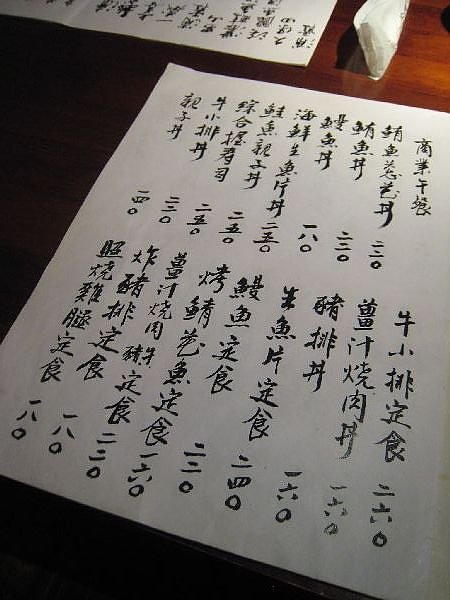 商業午餐
鮪魚蔥花丼 二二〇
鮪魚丼 二二〇
鰻魚丼 一八〇
海鮮生魚片丼 二五〇
鮭魚親子丼 二五〇
綜合握壽司 二五〇
牛小排丼 二二〇
親子丼 一四〇
牛小排定食 二六〇
薑汁燒肉丼 一六〇
豬排丼 一六〇
生魚片定食 二四〇
鰻魚定食 二二〇
烤鯖花魚定食 一六〇
薑汁燒肉牛豬定食 二二〇
炸豬排定食 一八〇
照燒雞腿定食 一八〇